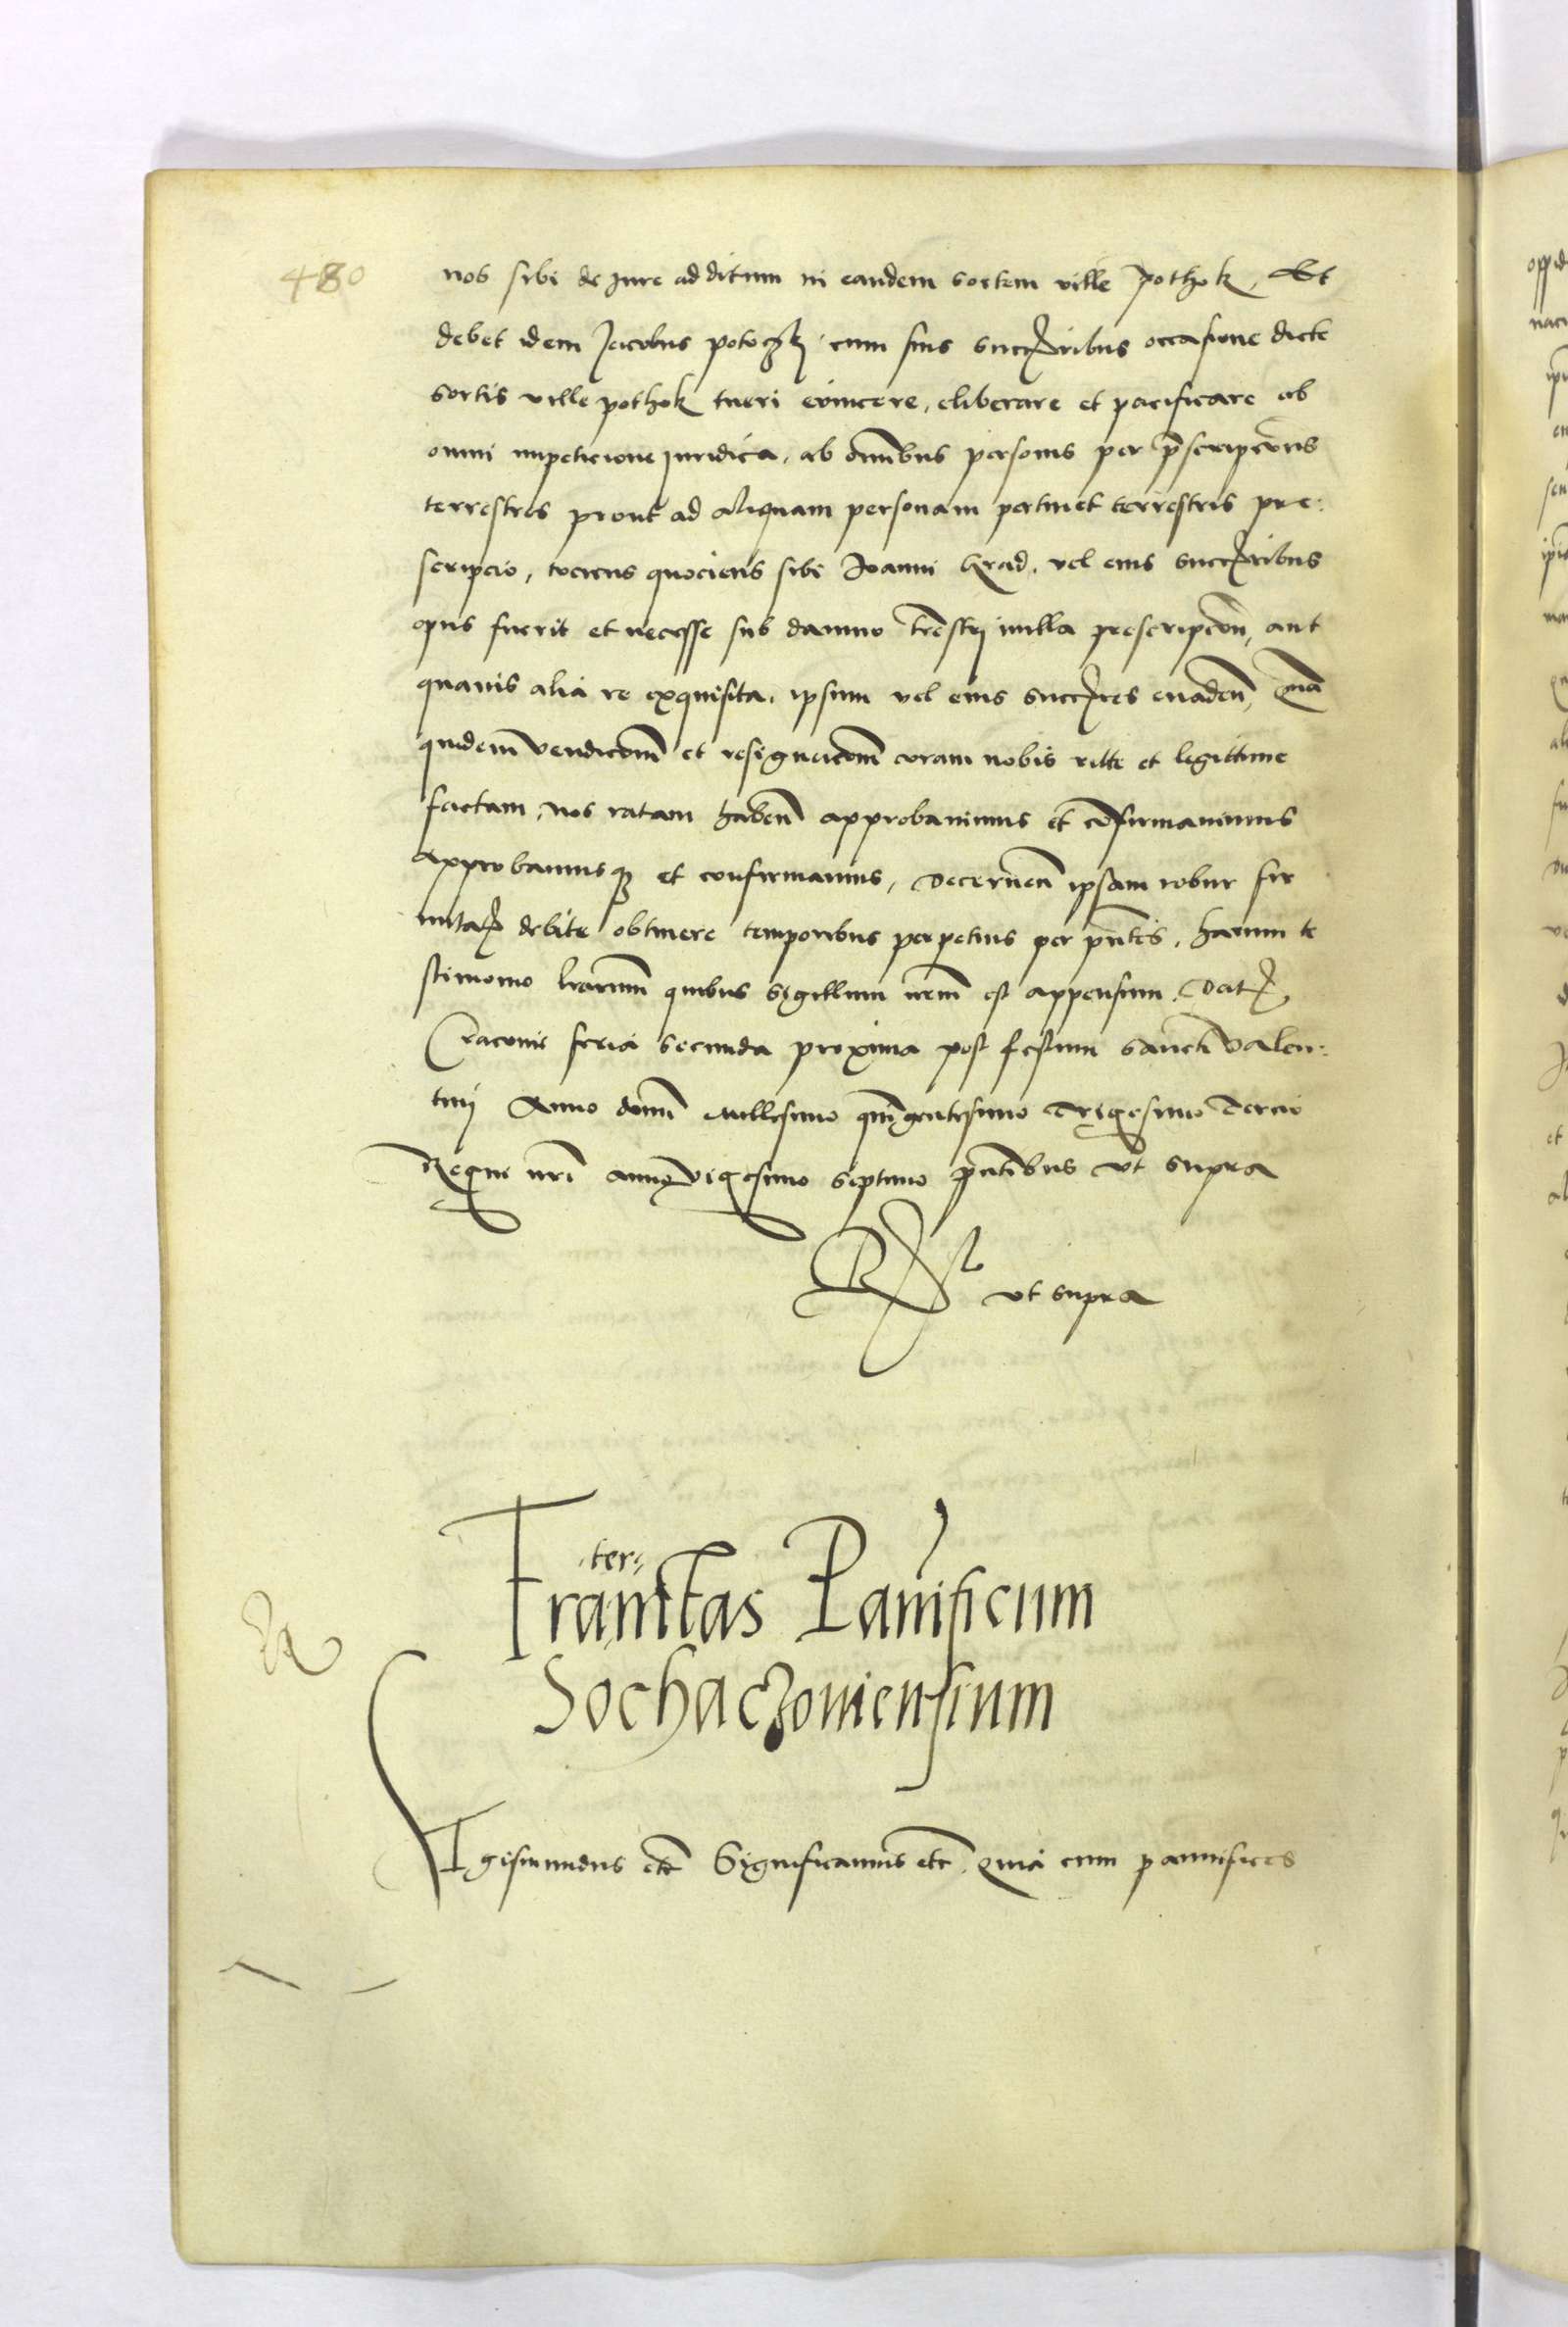 480
nos sibi de Jure additum in eandem sortem ville Pothok, Et
debet idem Jacobus potoczkj cum suis successoribus occasione dicte
sortis ville pothok tueri evincere, eliberare et pacificare ab
omni impeticione Juridica, ab omnibus personis per prescripcionis
terrestres prout ad aliquam personam pertinet terrestris pre:
scripcio, tociens quociens sibi Joanni Grad. vel eius successoribus
opus fuerit et necesse sub damno trestrj nulla prescripcion, aut
quavis alia re exquisita, ipsum vel eius successores evaden,
quidem vendicionem et resignacionem coram nobis ritte et legittime
factam, nos ratam haben approbavimus et confirmavimus
Approbamusq et confirmamus, decernen ipsam robur fir
mitatis debite obtinere temporibus perpetuis per pntes, harum te
stimonio lrarum quibus sigillum nrum est appensum. Dat
Cracovie feria secunda proxima post festum sancti valen:
tinj Anno domini millesimo quingentesimo Trigesimo Tercio
Regni nri anno vigesimo septimo pntibus vt supra
vt supra
ter
Franitas Panificum
Sochaczoviensium
Sigismundus etc Significamus etc. Quia cum pannifices